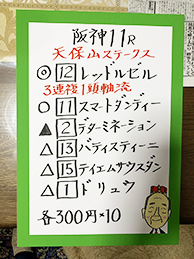 阪神11R
天保山ステークス
◎12レッドルゼル
3連複1頭軸流
○11スマートダンディー
▲2デターミネーション
△13バティスティーニ
△15テイエムサウスダン
△1ドリュウ
各300円×10